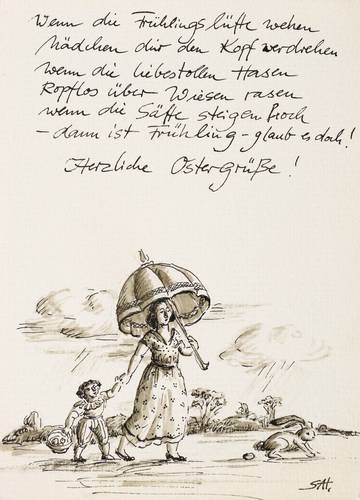 Wenn die Frühlingslüfte wehen
Mädchen dir den Kopf verdrehen
wenn die liebestollen Hasen
Kopflos über Wiesen rasen
wenn die Säfte steigen hoch
- dann ist Frühling - glaub es doch!
Herzliche Ostergrüße!
SAH.